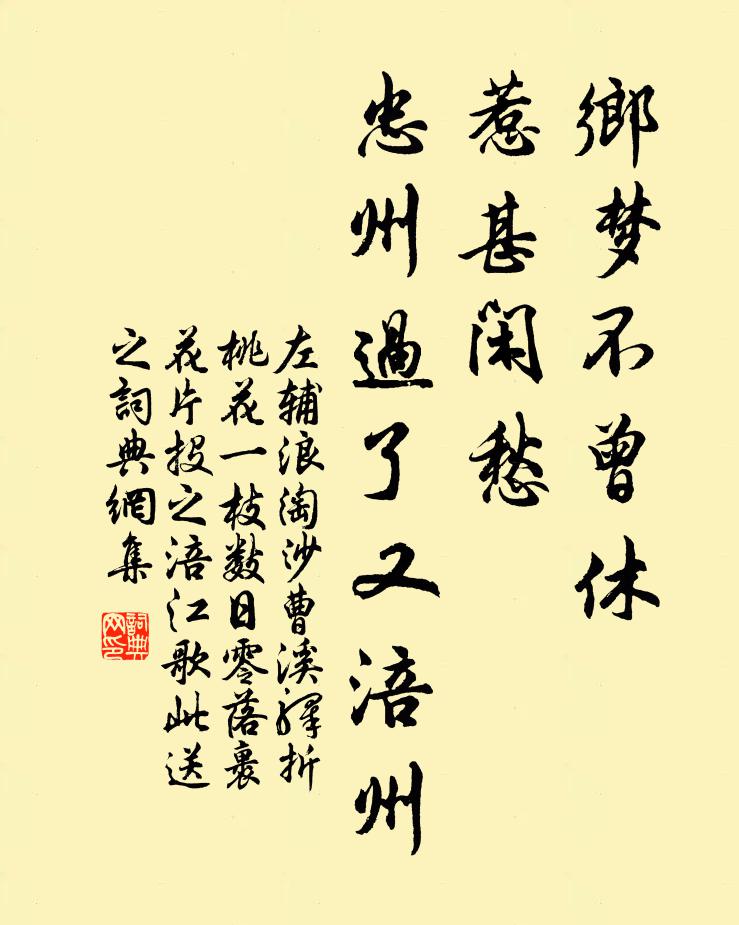 鄉梦不曾休
惹甚閑愁
忠州過了又涪州
左辅浪淘沙曹溪驿折
桃花一枝数日零落裹
花片投之涪江歌此送
之詞典網集
詞典
网印